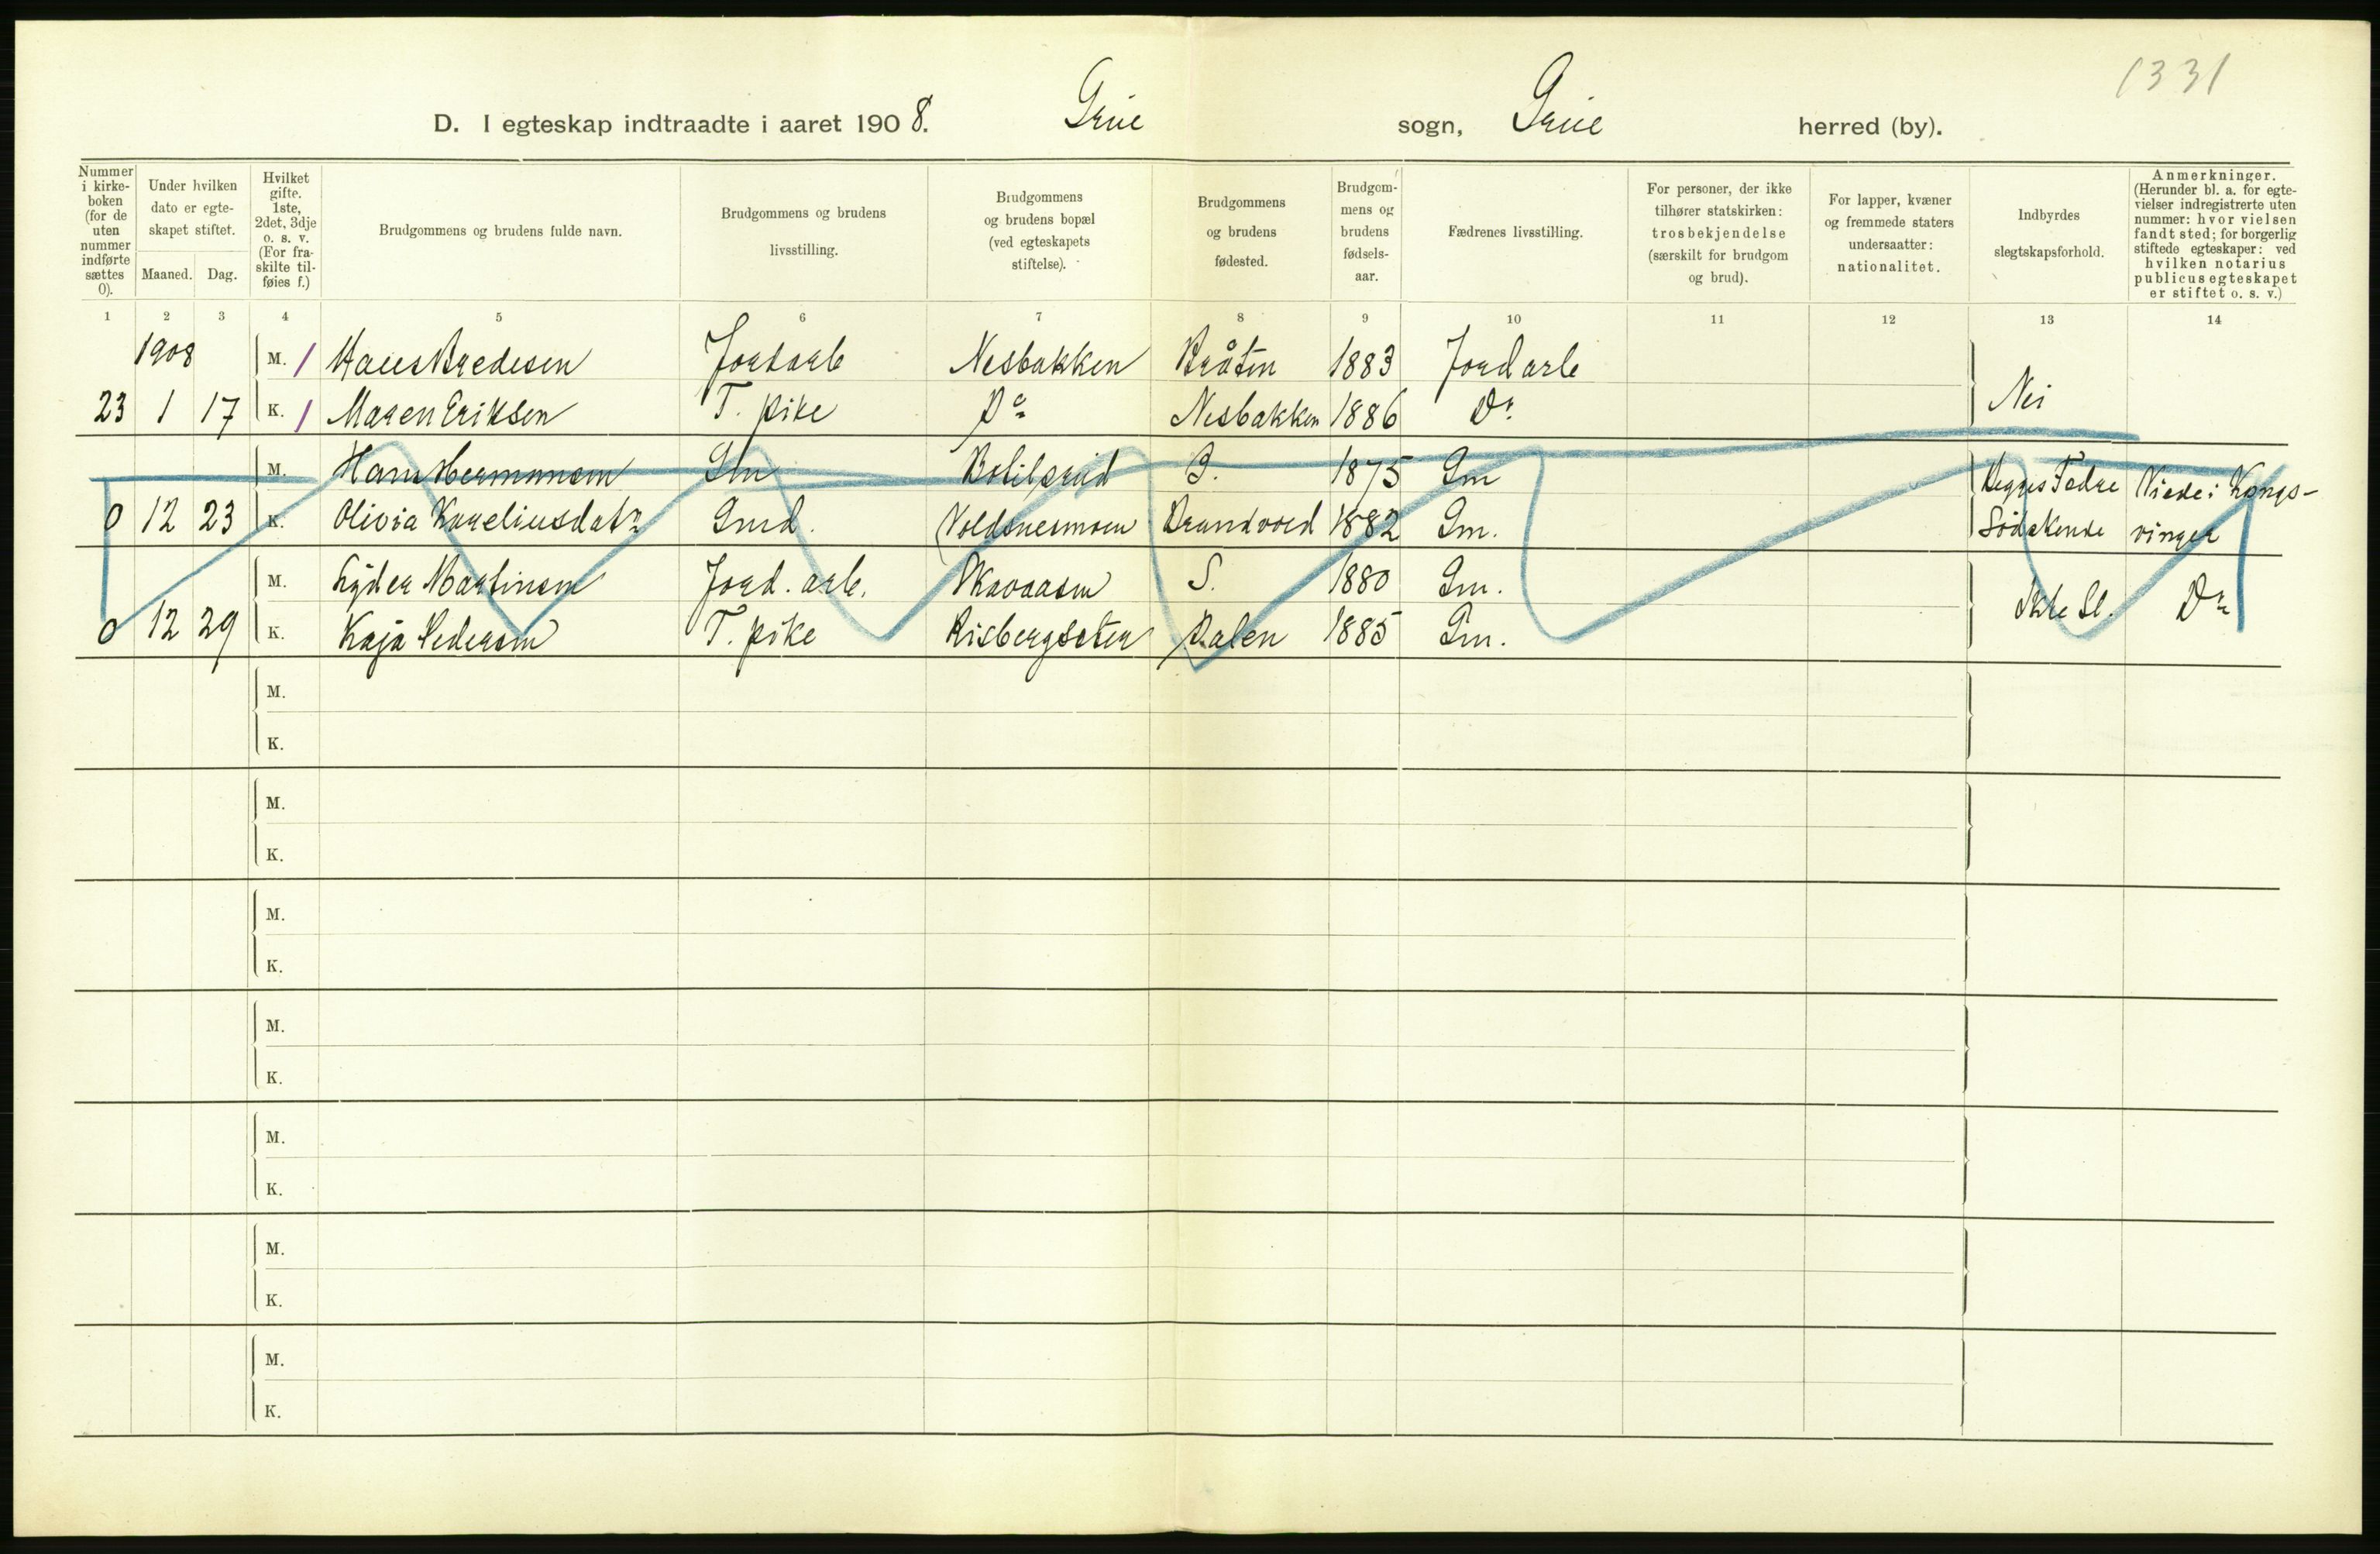 1331
D. I egteskap indtraadte i aaret 1908. Grue sogn, Grue herred (by).
Nummer i kirke- boken (for de uten nummer indførte sættes 0).
Under hvilken dato er egte- skapet stiftet.
Maaned. Dag.
Hvilket gifte. 1ste, 2det, 3dje o. s. v. (For fra- skilte til- føies f.)
Brudgommens og brudens fulde navn.
Brudgommens og brudens livsstilling.
Brudgommens og brudens bopæl (ved egteskapets stiftelse).
Brudgommens og brudens fødested.
Brudgom- mens og brudens fødsels- aar.
Fædrenes livsstilling.
For personer, der ikke tilhører statskirken: trosbekjendelse (særskilt for brudgom og brud).
For lapper, kvæner og fremmede staters undersaatter: nationalitet.
Indbyrdes slegtskapsforhold.
Anmerkninger. (Herunder bl. a. for egte- vielser indregistrerte uten nummer: hvor vielsen fandt sted; for borgerlig stiftede egteskaper: ved hvilken notarius publicus egteskapet er stiftet o. s. v.)
1 2 3 4 5 6 7 8 9 10 11 12 13 14
1908 M. 1 Hans Bredesen Jordarb Nesbakken Bråten 1883 Jordarb
23 1 17 K. 1 Maren Eriksen T. pike Do Nesbakken 1886 Do Nei
M. Hans Hermansen Gm B. 1875 Gm Begges Fedre Viede i Kongs-
0 12 23 K. Olivia Korneliusdatr Gmd. Brandvold 1882 Gm. Södskende vinger
M. Lyder Martinsen Jord. arb. S. 1880 Gm.
0 12 29 K. Kaja Pedersen T. pike Risbergseter Dalen 1885 Gm. Ikke Sl. Do
M.
K.
M.
K.
M.
K.
M.
K.
M.
K.
M.
K.
M.
K.